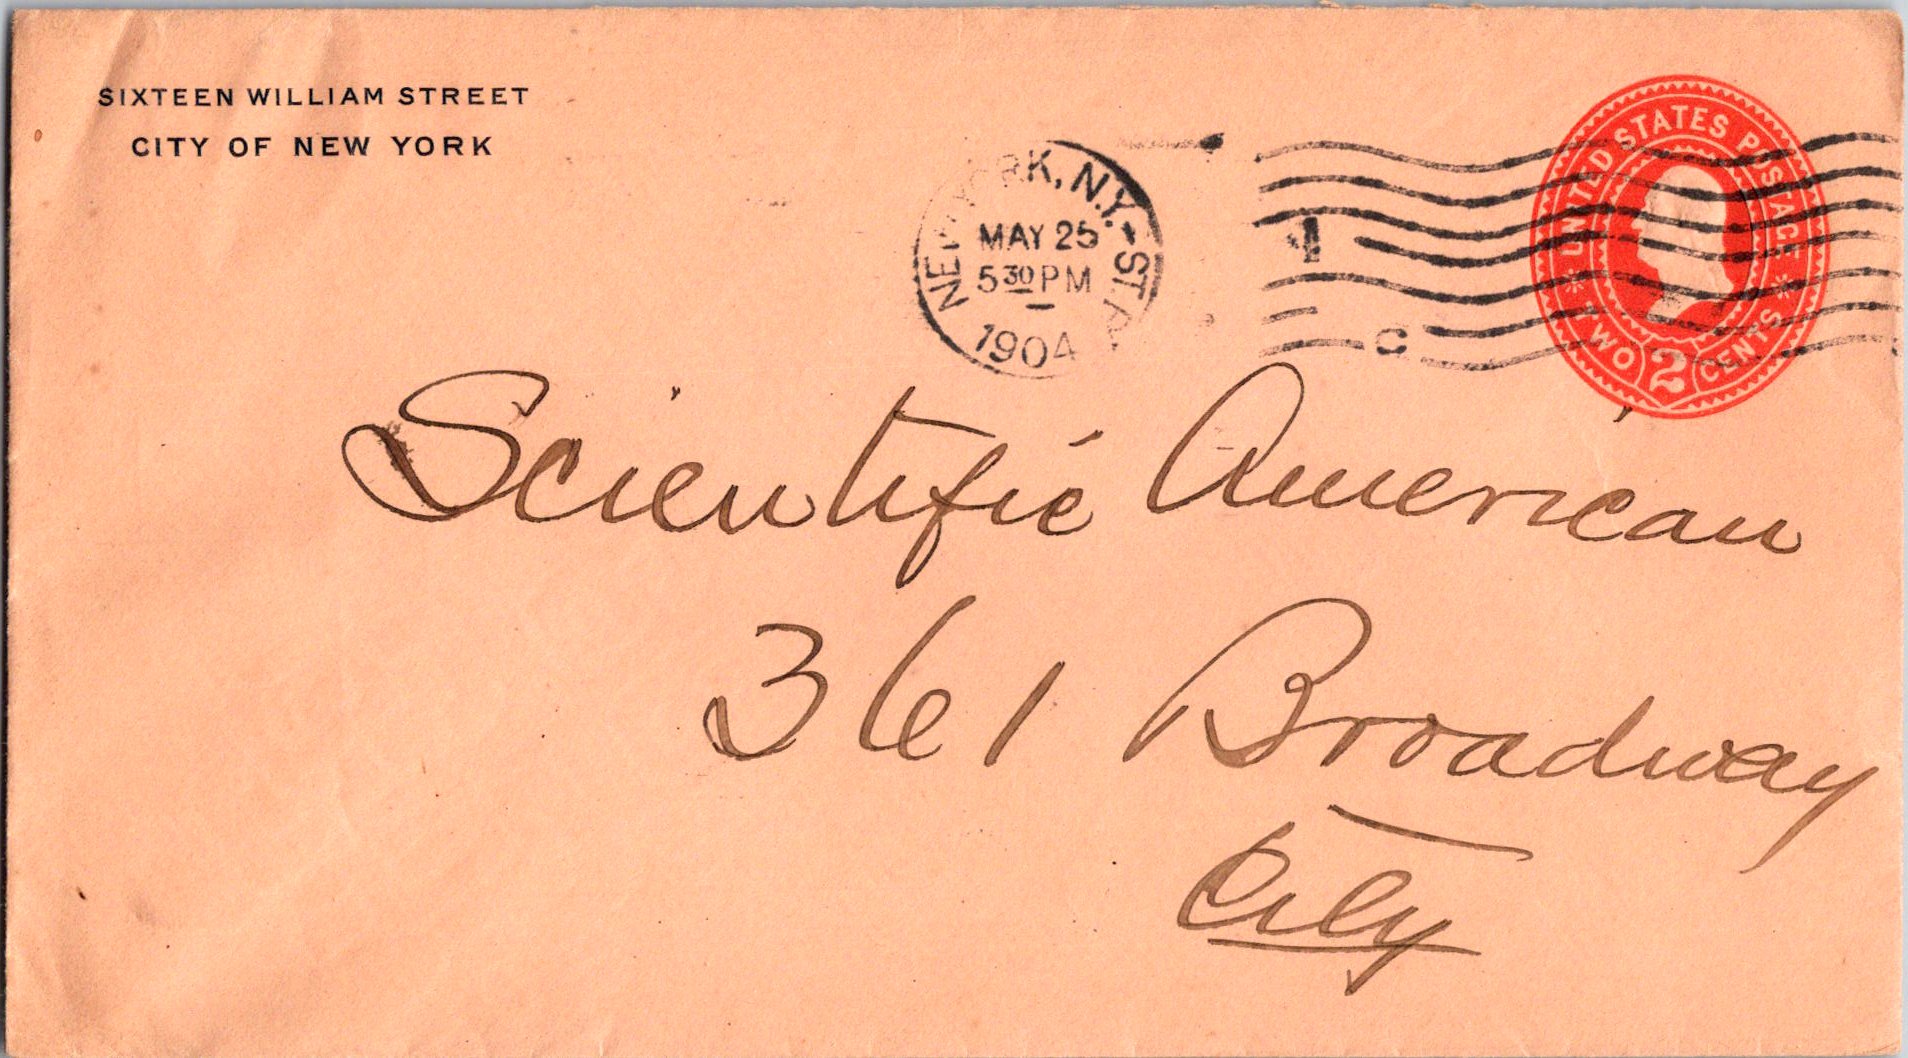 SIXTEEN WILLIAM STREET
CITY OF NEW YORK
NEW YORK, N.Y.-STA.
MAY 25
5 30 PM
1904
1
C
UNITED STATES POSTAGE
TWO 2 CENTS
Scientific American
361 Broadway
City